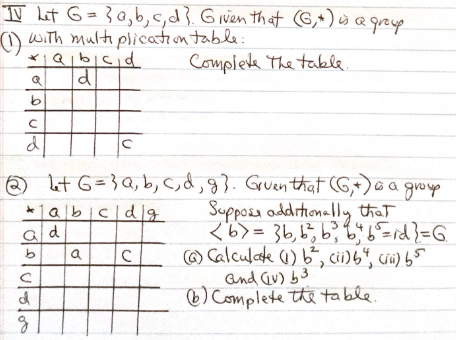 IV Let G = {a,b,c,d}. Given that (G,*) is a group
(1) with multiplication table:
* a b c d Complete the table.
a d
b
c
d c
(2) Let G = {a,b,c,d,g}. Given that (G,*) is a group
* a b c d g Suppose additionally that
a d <b> = {b, b², b³, b⁴, b⁵=id} = G
b a c (a) Calculate (i) b², (ii) b⁴, (iii) b⁵
c and (iv) b³
d (b) Complete the table.
g